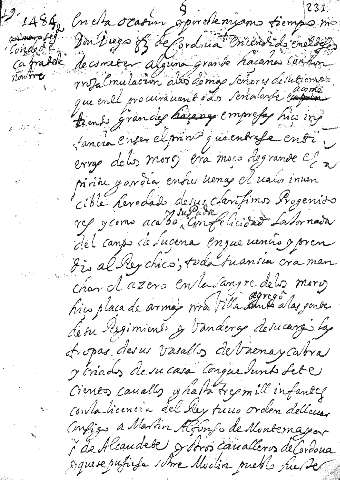 231
1484
En esta ocasion y por el mismo tiempo
Don Diego frz de Cordova
de cometer alguna grande haçaña con hon
rrosa emulacion a los demas señores de su tiempo
que en el procuravan todos señalarse
grandes empresas hiço ins
tancia en ser el primero que entrase en ti
erras de los moros era moço de grande es
piritu y ardia en sus venas el valor inven
cible heredado de sus clarissimos Progenito
res y como acabo su Padre con felicidad la Jornada
del campo de lucena en que vencio y pren
dio al Rey chico, toda su ansia era man
char el azero en la sangre de los moros
hiço plaça de armas villa agregó a las gentes
de su Regimiento y Vanderas de su cargo las
tropas de sus vasallos de Vaena y Cabra
y criados de su casa con que Junto sete
cientos cavallos y hasta tres mill infantes
con la licencia del Rey tuvo orden de llevar
consigo a Martin Alfonso de Montemayor
Sr. de Alcaudete y otros cavalleros de Cordova
y que se pusiese sobre Moclin pueblo fuerte